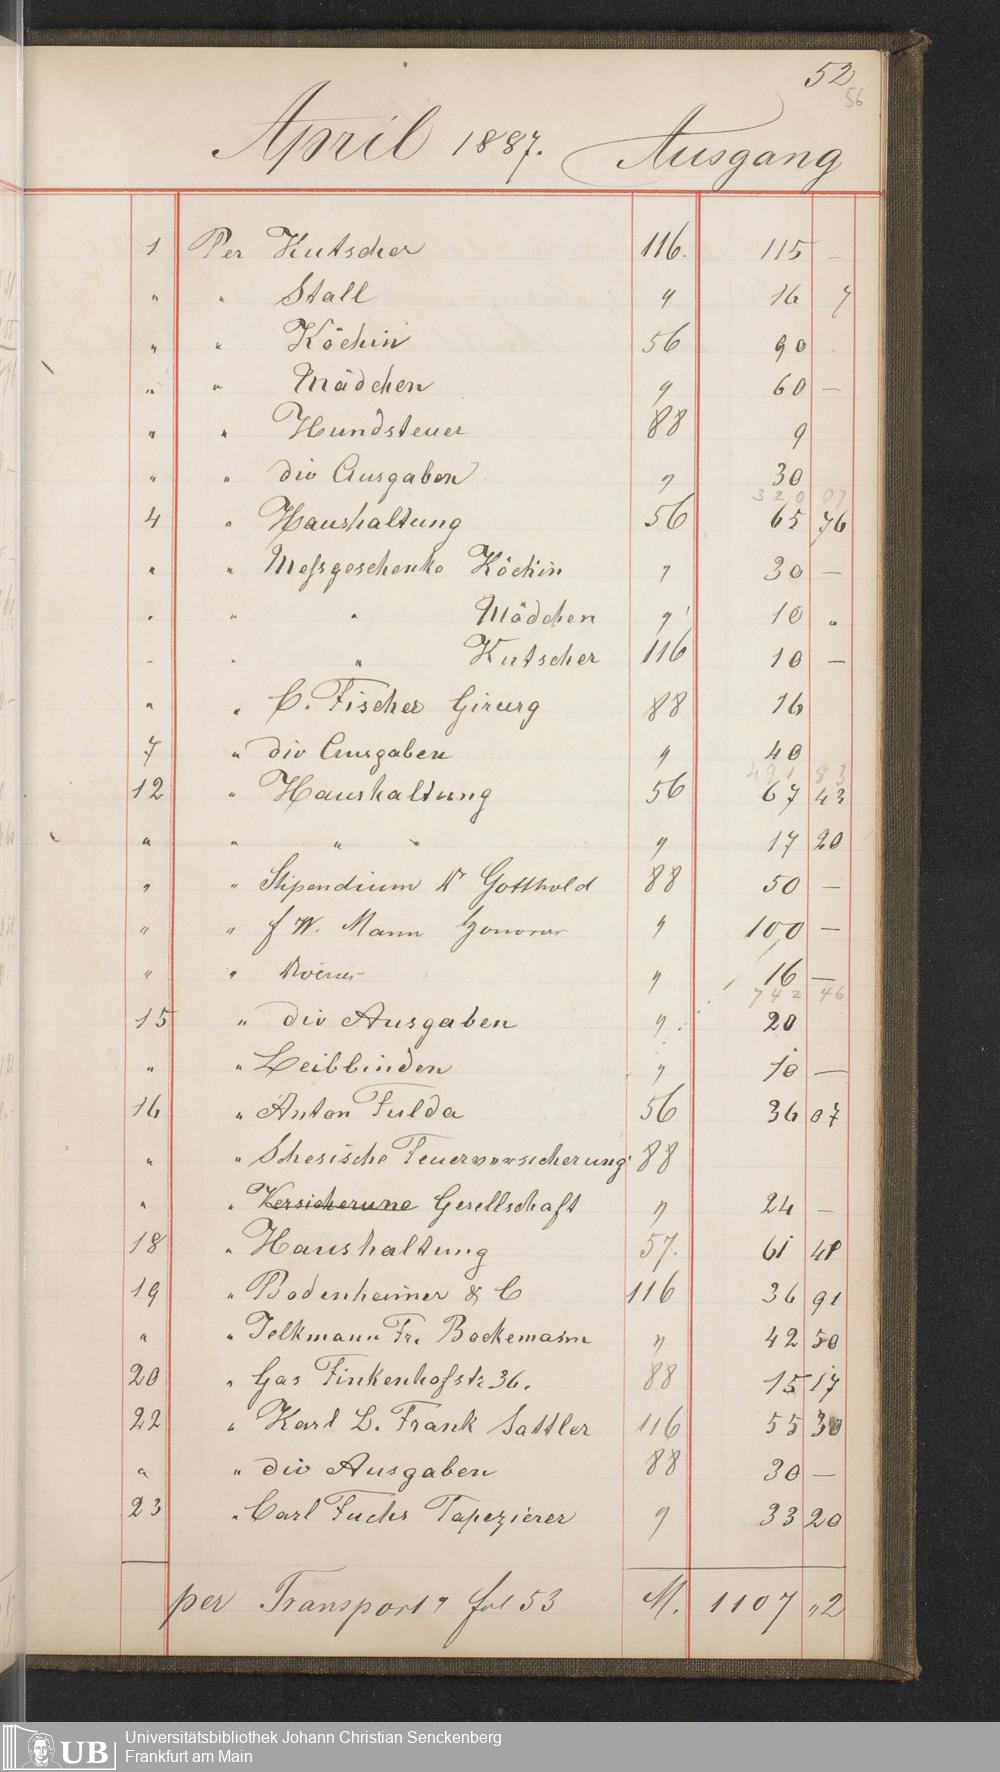 52
56
April 1887. Ausgang
1 Per Kutscher 116. 115 –
" " Stall " 16 7
" " Köchin 56 90
" " Mädchen " 60 –
" " Hundsteuer 88 9
" " div Ausgaben " 30
320 07
4 " Haushaltung 56 65 76
" " Meſsgeschenke Köchin " 30 –
" " " Mädchen " 10 "
" " " Kutscher 116 10 –
" " C. Fischer Girurg 88 16
7 " div Ausgaben " 40
491 83
12 " Haushaltung 56 67 43
" " " " 17 20
" " Stipendium Dr Gotthold 88 50 –
" " f W. Mann Honorar " 100 –
" " " 16 –
742 46
15 " div Ausgaben " 20
" " Leibbinden " 10 –
16 " Anton Fulda 56 36 07
" " Schesische Feuerversicherung 88
" " Versicherung Gesellschaft " 24 –
18 " Haushaltung 57. 61 41
19 " Bodenheimer & C 116 36 91
" " Telkmann Fr. Bockemann " 42 50
20 " Gas Finkenhofstr 36. 88 15 17
22 " Karl L. Frank Sattler 116 55 30
" " div Ausgaben 88 30 –
23 " Carl Fuchs Tapezierer " 33 20
per Transport " fol 53 M. 1107 "2
Universitätsbibliothek Johann Christian Senckenberg
Frankfurt am Main
UB